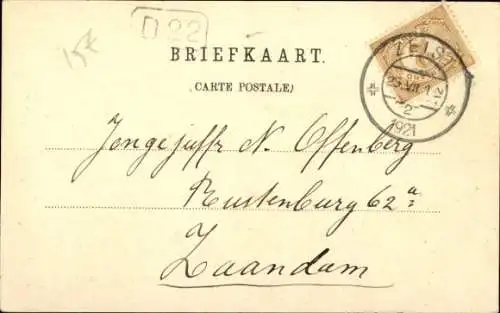 15€
D 22
BRIEFKAART.
(CARTE POSTALE)
ZEIST
1921
Jongejuffr N. Offenberg
Rustenburg 62a
Zaandam